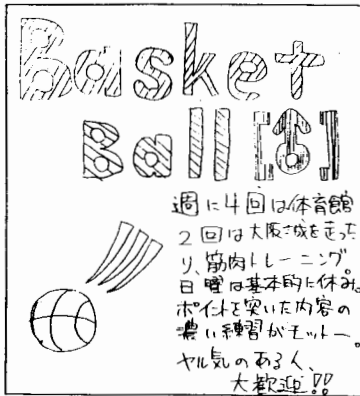 Basket
Ball [♂]
週に4回は体育館
2回は大阪城を走った
り、筋肉トレーニング。
日曜は基本的に休み。
ポイントを突いた内容の
濃い練習がモットー。
ヤル気のある人、
大歓迎!!